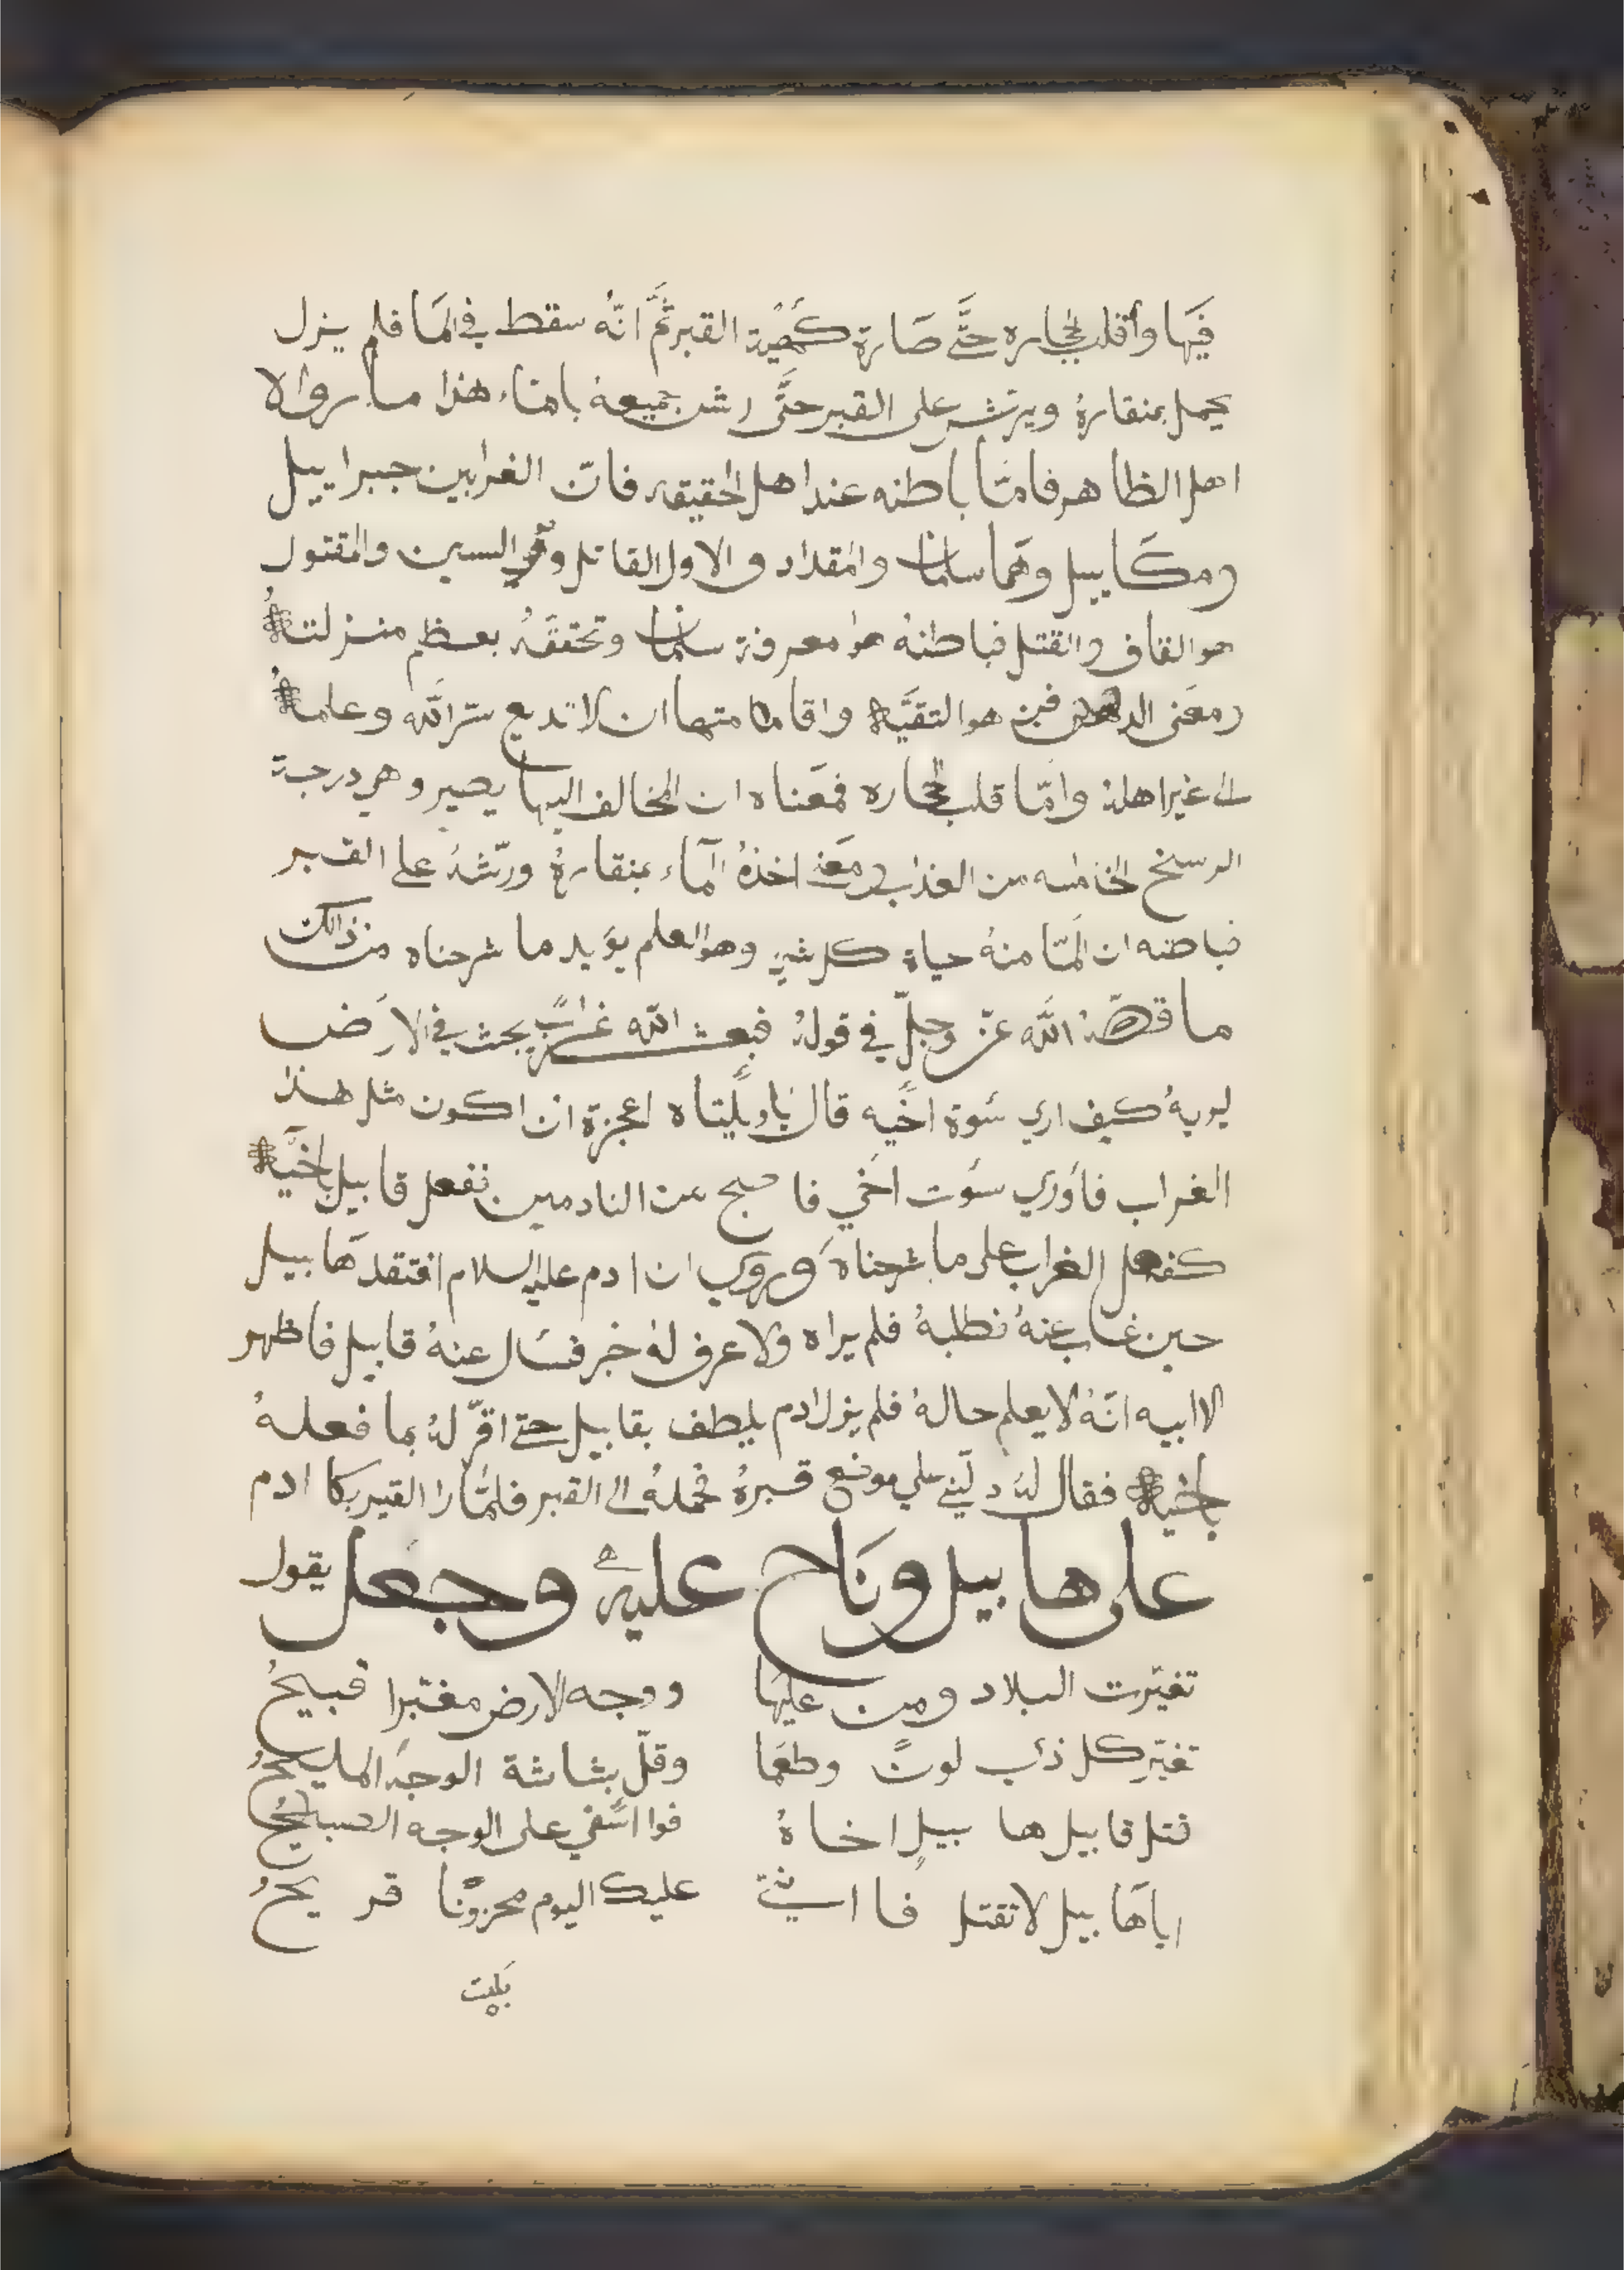 فيَها وأقلب الحجاره حتَّى صَارة كهية القبر ثمَّ انّهُ سقط في المَا فلم يزل
يحمل بمنقارهُ ويرتش على القبر حتَّى رش جميعهُ بالماء هذا ما رواه لا
اهل الظاهر فامّا باطنه عند اهل الحقيقه فانّ الغرابين جبراييل
وميكَاييل وهَما سلمان والمقداد والاول القاتل وهو السين والمقتول
هو القاف والقتل فباطنهُ هوا معرفة سلمان وتحققَهُ بعظم منزلتهُ
ومعَنى الدفن هو التقيَّه واقامتها ان لا تديع سرّ اللَّه وعلمهُ
الى غير اهلهُ وامّا قلب الحجاره فمعَناه ان المخالف اليها يصير وهي درجة
الرسخ الخامسه من العذاب ومعَنى اخذهُ المآء بمنقارهُ ورشّهُ على القبر
فباطنه ان المّا منهُ حياة كل شيء وهو العلم يؤيد ما شرحناه من ذالك
ما قصّهُ اللَّه عزّ وجلّ في قولهُ فبعث اللَّه غرابً يبحث في الارَض
ليريهُ كيف اري سَوة اخَيه قال يَاويلَيتاه اعجزة ان اكون مثل هذا
الغراب فأوَري سَوت اخَي فاصبح من النادمين ففعل قابيل باخَيهُ
كفعل الغراب على ما شرحناه وروي ان ادم عليه السلام افتقد هَابيل
حين غاب عنهُ فطلبهُ فلم يراه ولا عرف لهُ خبر فسَال عنهُ قابيل فاظهر
لا ابيه انّهُ لا يعلم حالهُ فلم يزل ادم يلطف بقابيل حتى اقرّ لهُ بما فعلهُ
باخيهُ فقال لهُ دلّني على موضع قبرهُ فحملهُ الى القبر فلمَّا را القبر بكا ادم
على هابيل ونَاح عليه وجعل يقول
تغيّرت البلاد ومن عليهَا ووجه الارض مغتبرا قبيحُ
تغيّر كل ذي لونً وطعَما وقلّ بشاشة الوجهَ المليحُ
قتل قابيل هابيل اخاهُ فوا اسَفي على الوجه الصبيحُ
اياهَابيل لا تقتل فا عليك اليوم محزونَا قريحُ
بكيت